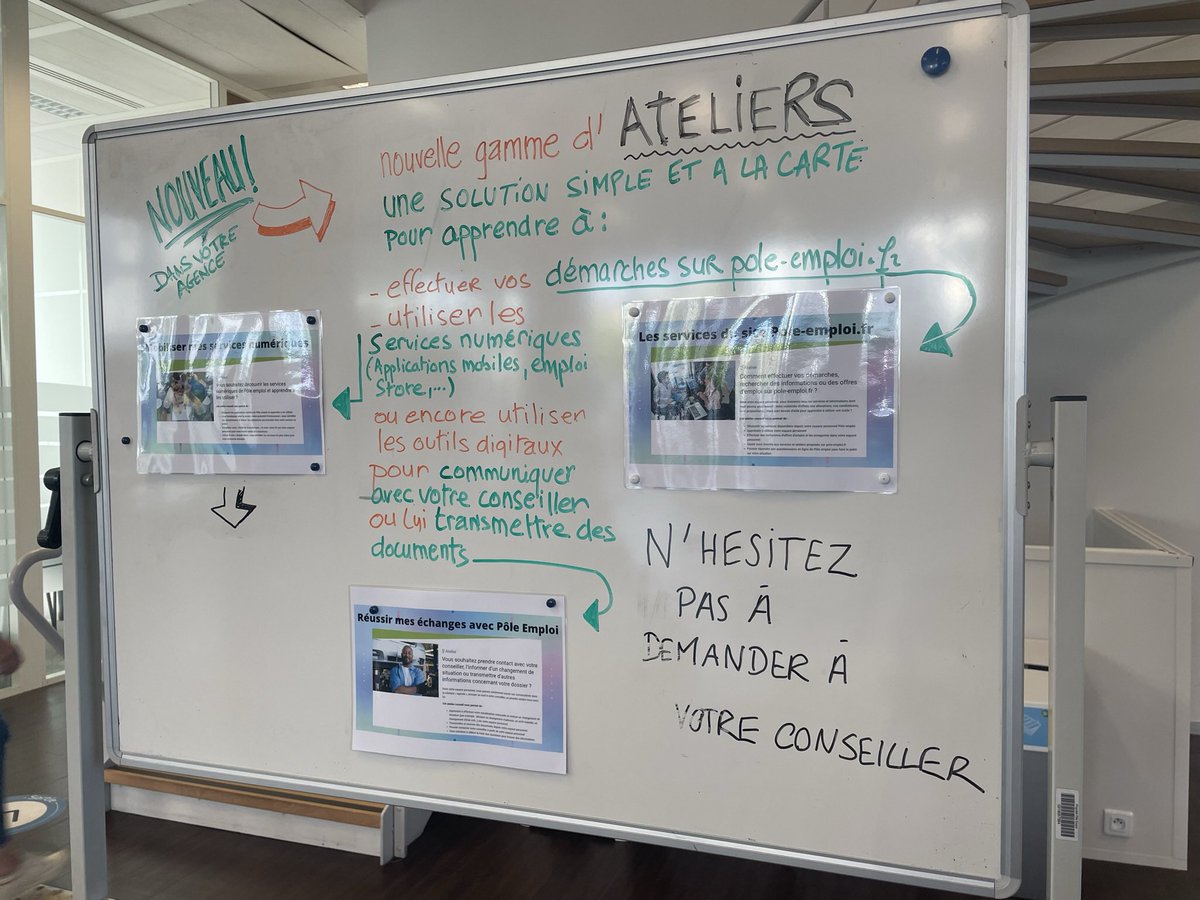 NOUVEAU!
DANS VOTRE
AGENCE
nouvelle gamme d' ATELIERS
une SOLUTION SIMPLE ET A LA CARTE
pour apprendre à :
- effectuer vos démarches sur pole-emploi.fr
- utiliser les
Services numériques
(Applications mobiles, emploi
Store,...)
ou encore utiliser
les outils digitaux
pour communiquer
avec votre conseiller
ou lui transmettre des
documents
mes services numériques
Vous souhaitez découvrir les services
numériques de Pôle emploi et apprendre à
les utiliser ?
Les services du site Pole-emploi.fr
Atelier
Comment effectuer vos démarches,
rechercher des informations ou des offres
d'emploi sur pole-emploi.fr ?
Réussir mes échanges avec Pôle Emploi
Atelier
Vous souhaitez prendre contact avec votre
conseiller, l'informer d'un changement de
situation ou transmettre d'autres
informations concernant votre dossier ?
N'HESITEZ
PAS À
DEMANDER À
VOTRE CONSEILLER